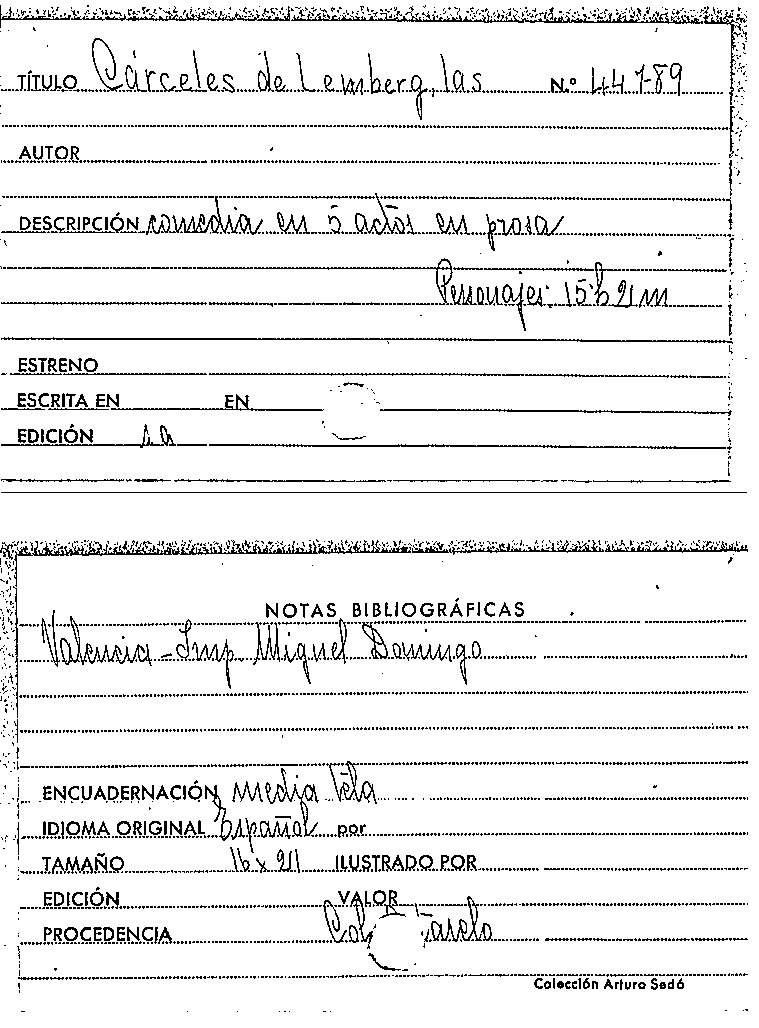 TÍTULO Cárceles de Lemberg, las N.º 44789
AUTOR
DESCRIPCIÓN comedia en 5 actos en prosa
Personajes: 15 h 2 m
ESTRENO
ESCRITA EN EN
EDICIÓN
NOTAS BIBLIOGRÁFICAS
Valencia - Imp Miguel Domingo
ENCUADERNACIÓN media tela
IDIOMA ORIGINAL Español por
TAMAÑO 16 x 21 ILUSTRADO POR
EDICIÓN VALOR
PROCEDENCIA
Colección Arturo Sedó